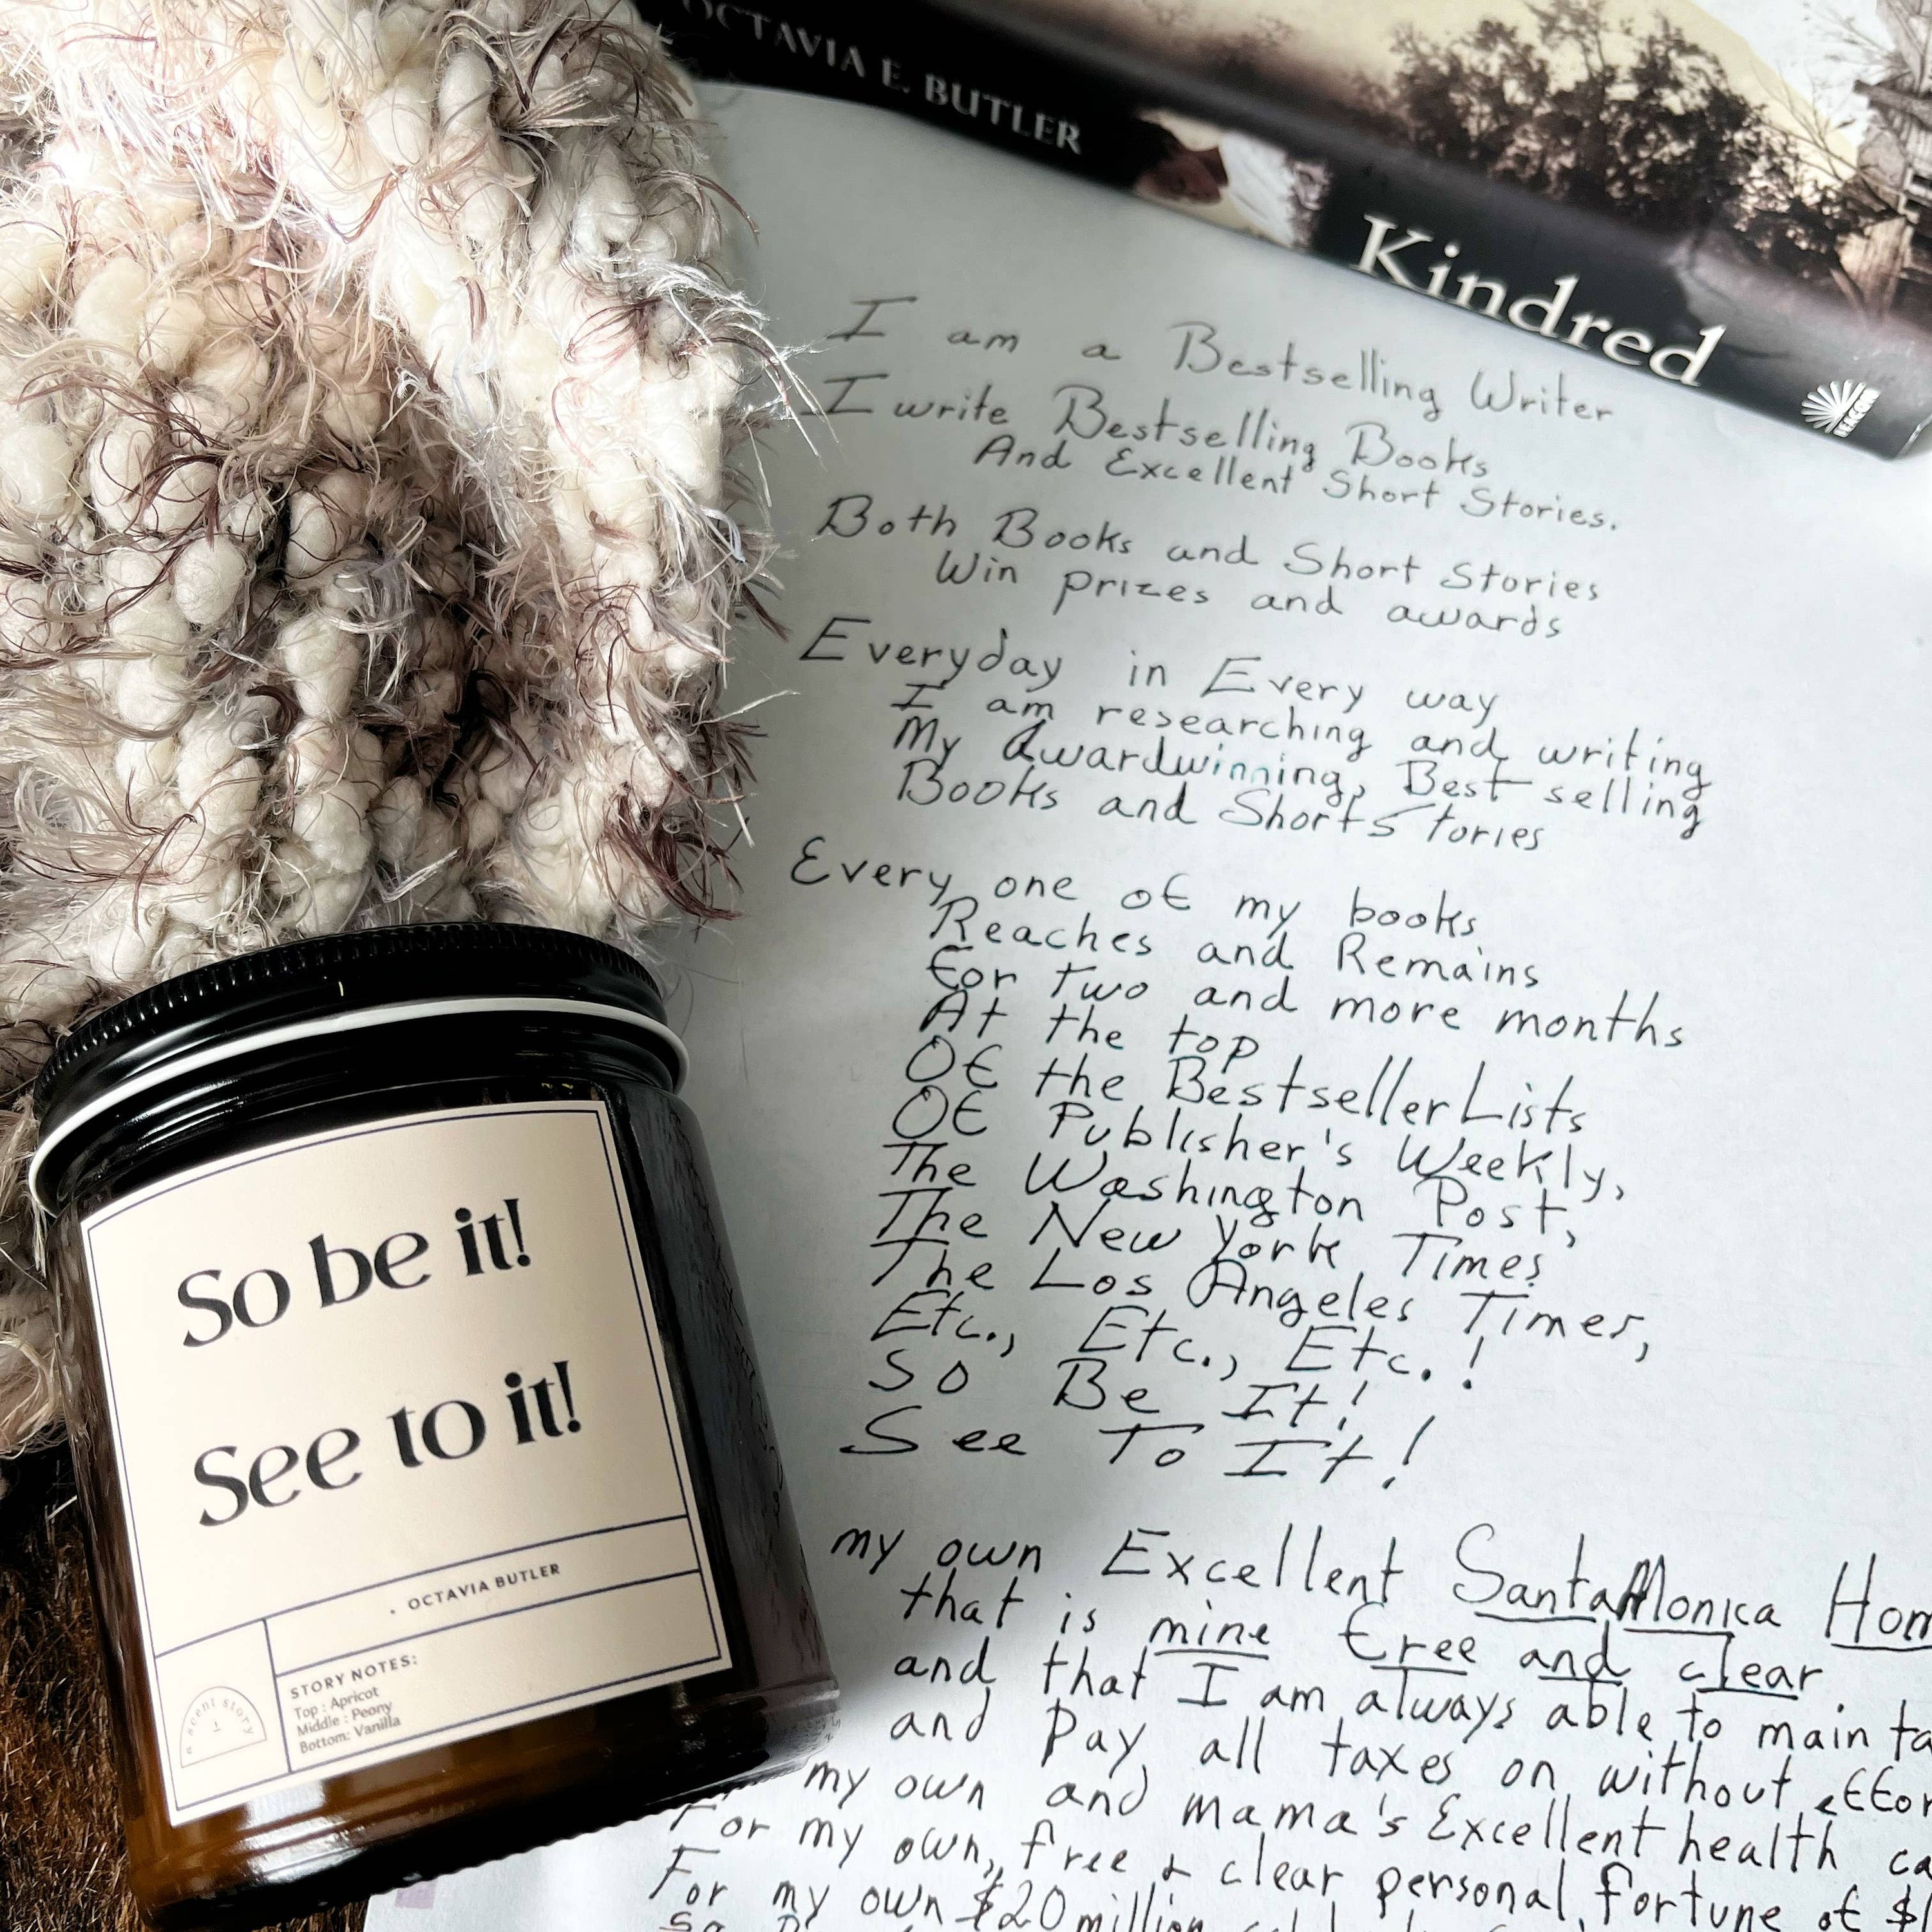 OCTAVIA E. BUTLER
Kindred
BEACON
I am a Bestselling Writer
I write Bestselling Books
And Excellent Short Stories.
Both Books and Short Stories
Win prizes and awards
Everyday in Every way
I am researching and writing
My Awardwinning, Best selling
Books and Short Stories
Every one of my books
Reaches and Remains
For two and more months
At the top
Of the Bestseller Lists
Of Publisher's Weekly,
The Washington Post,
The New York Times
The Los Angeles Times,
Etc., Etc., Etc.!
So Be It!
See To It!
my own Excellent Santa Monica Hom
that is mine free and clear.
and that I am always able to mainta
and Pay all taxes on without effor
my own and mama's Excellent health ca
For my own, free & clear personal fortune of $
For my own $20 million
So be it!
See to it!
. OCTAVIA BUTLER
a scent story
STORY NOTES:
Top : Apricot
Middle : Peony
Bottom: Vanilla